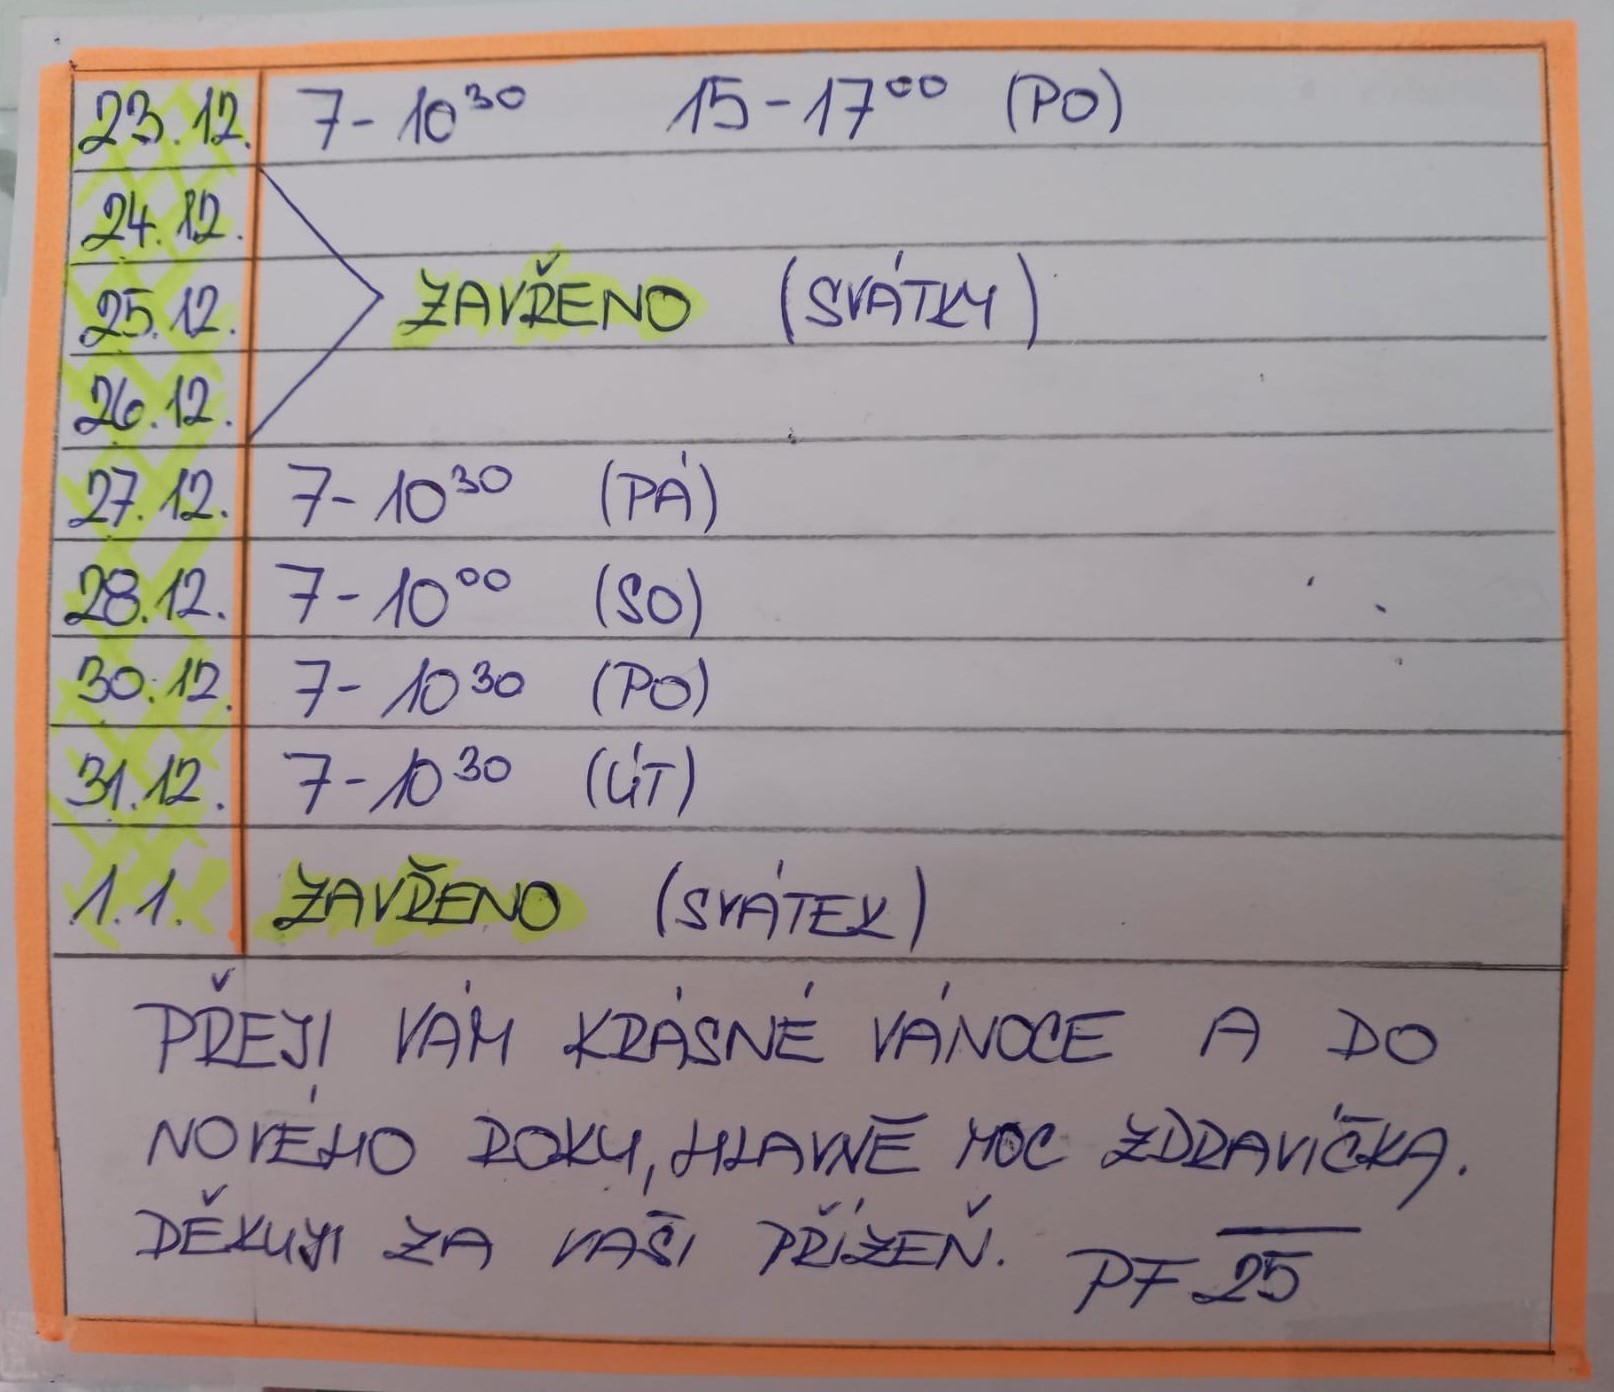 23.12. 7-10³⁰ 15-17⁰⁰ (PO)
24.12.
25.12. ZAVŘENO (SVÁTKY)
26.12.
27.12. 7-10³⁰ (PÁ)
28.12. 7-10⁰⁰ (SO)
30.12. 7-10³⁰ (PO)
31.12. 7-10³⁰ (ÚT)
1.1. ZAVŘENO (SVÁTEK)
PŘEJI VÁM KRÁSNÉ VÁNOCE A DO
NOVÉHO ROKU, HLAVNĚ MOC ZDRAVÍČKA.
DĚKUJI ZA VAŠI PŘÍZEŇ. PF 25